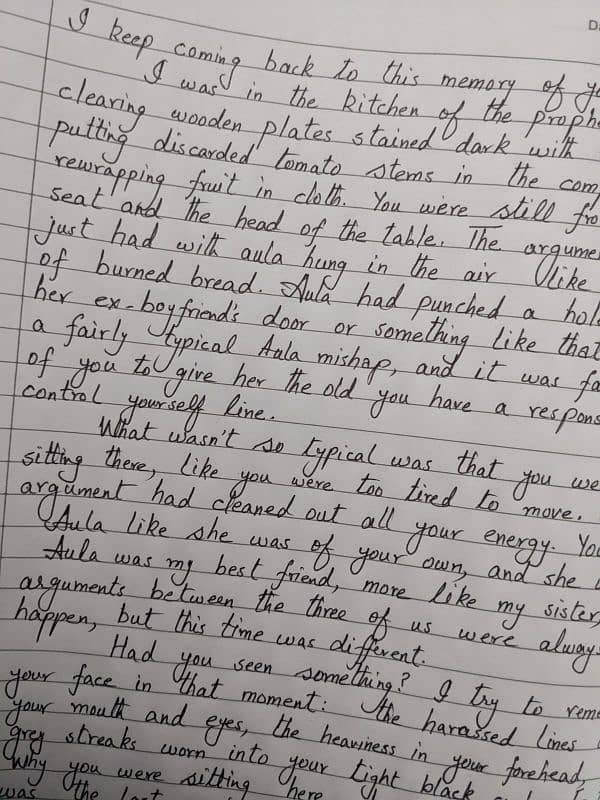 D
I keep coming back to this memory of yo
I was in the kitchen of the proph
clearing wooden plates stained dark with
putting discarded tomato stems in the com
rewrapping fruit in cloth. You were still fro
seat and the head of the table. The argume
just had with aula hung in the air like
of burned bread. Aula had punched a hol
her ex-boyfriend's door or something like that
a fairly typical Aula mishap, and it was fa
of you to give her the old you have a respons
control yourself line.
What wasn't so typical was that you we
sitting there, like you were too tired to move.
argument had cleaned out all your energy. You
Aula like she was of your own, and she
Aula was my best friend, more like my sister,
arguments between the three of us were always
happen, but this time was different.
Had you seen something? I try to reme
your face in that moment: the harassed lines
your mouth and eyes, the heaviness in your forehead,
grey streaks worn into your tight black
Why you were sitting here
was the